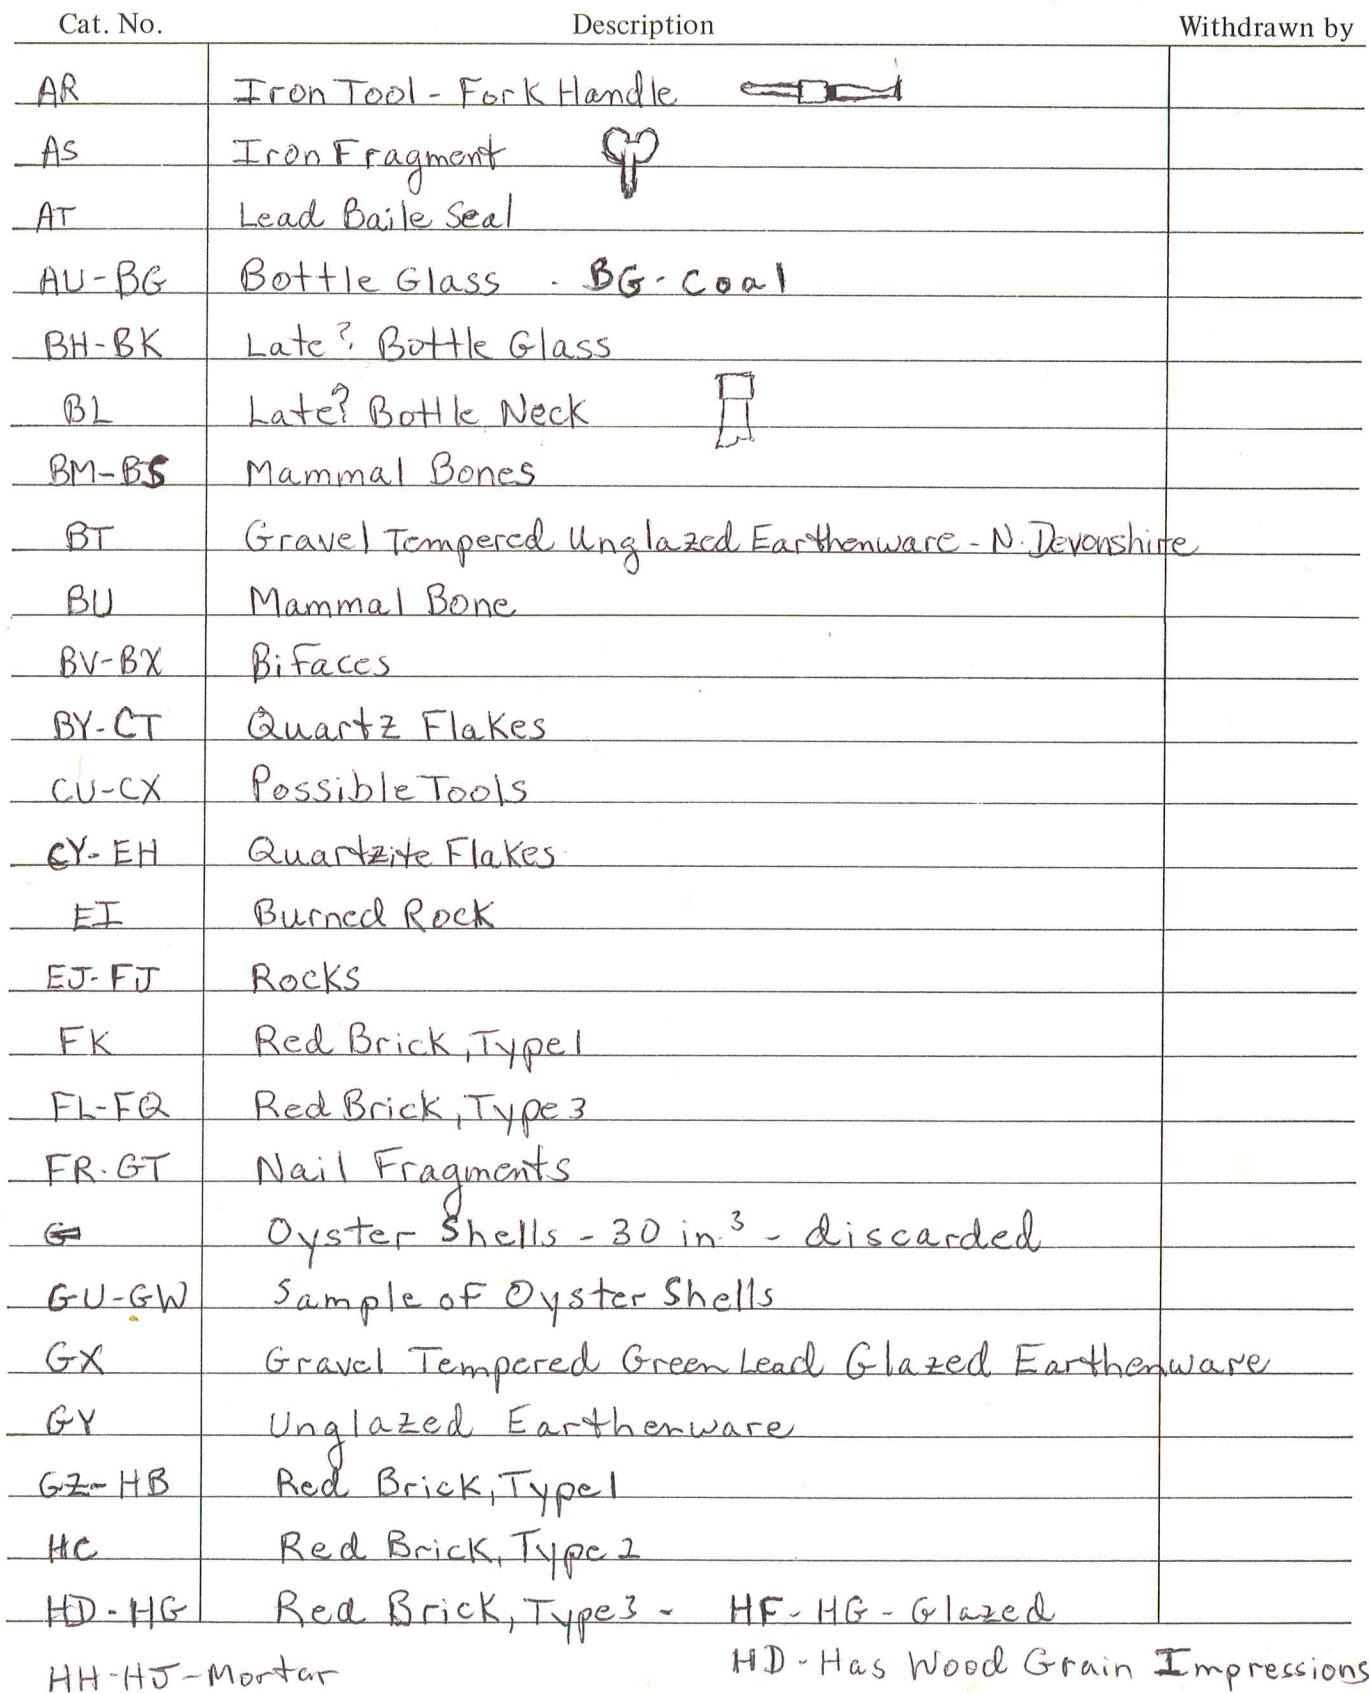 Cat. No. Description Withdrawn by
AR Iron Tool - Fork Handle
AS Iron Fragment
AT Lead Baile Seal
AU-BG Bottle Glass . BG-Coal
BH-BK Late? Bottle Glass
BL Late? Bottle Neck
BM-BS Mammal Bones
BT Gravel Tempered Unglazed Earthenware - N. Devonshire
BU Mammal Bone
BV-BX Bifaces
BY-CT Quartz Flakes
CU-CX Possible Tools
CY-EH Quartzite Flakes
EI Burned Rock
EJ-FJ Rocks
FK Red Brick, Type 1
FL-FQ Red Brick, Type 3
FR-GT Nail Fragments
Oyster Shells - 30 in.³ - discarded
GU-GW Sample of Oyster Shells
GX Gravel Tempered Green Lead Glazed Earthenware
GY Unglazed Earthenware
GZ-HB Red Brick, Type 1
HC Red Brick, Type 2
HD-HG Red Brick, Type 3 - HF-HG-Glazed
HH-HJ-Mortar HD-Has Wood Grain Impressions